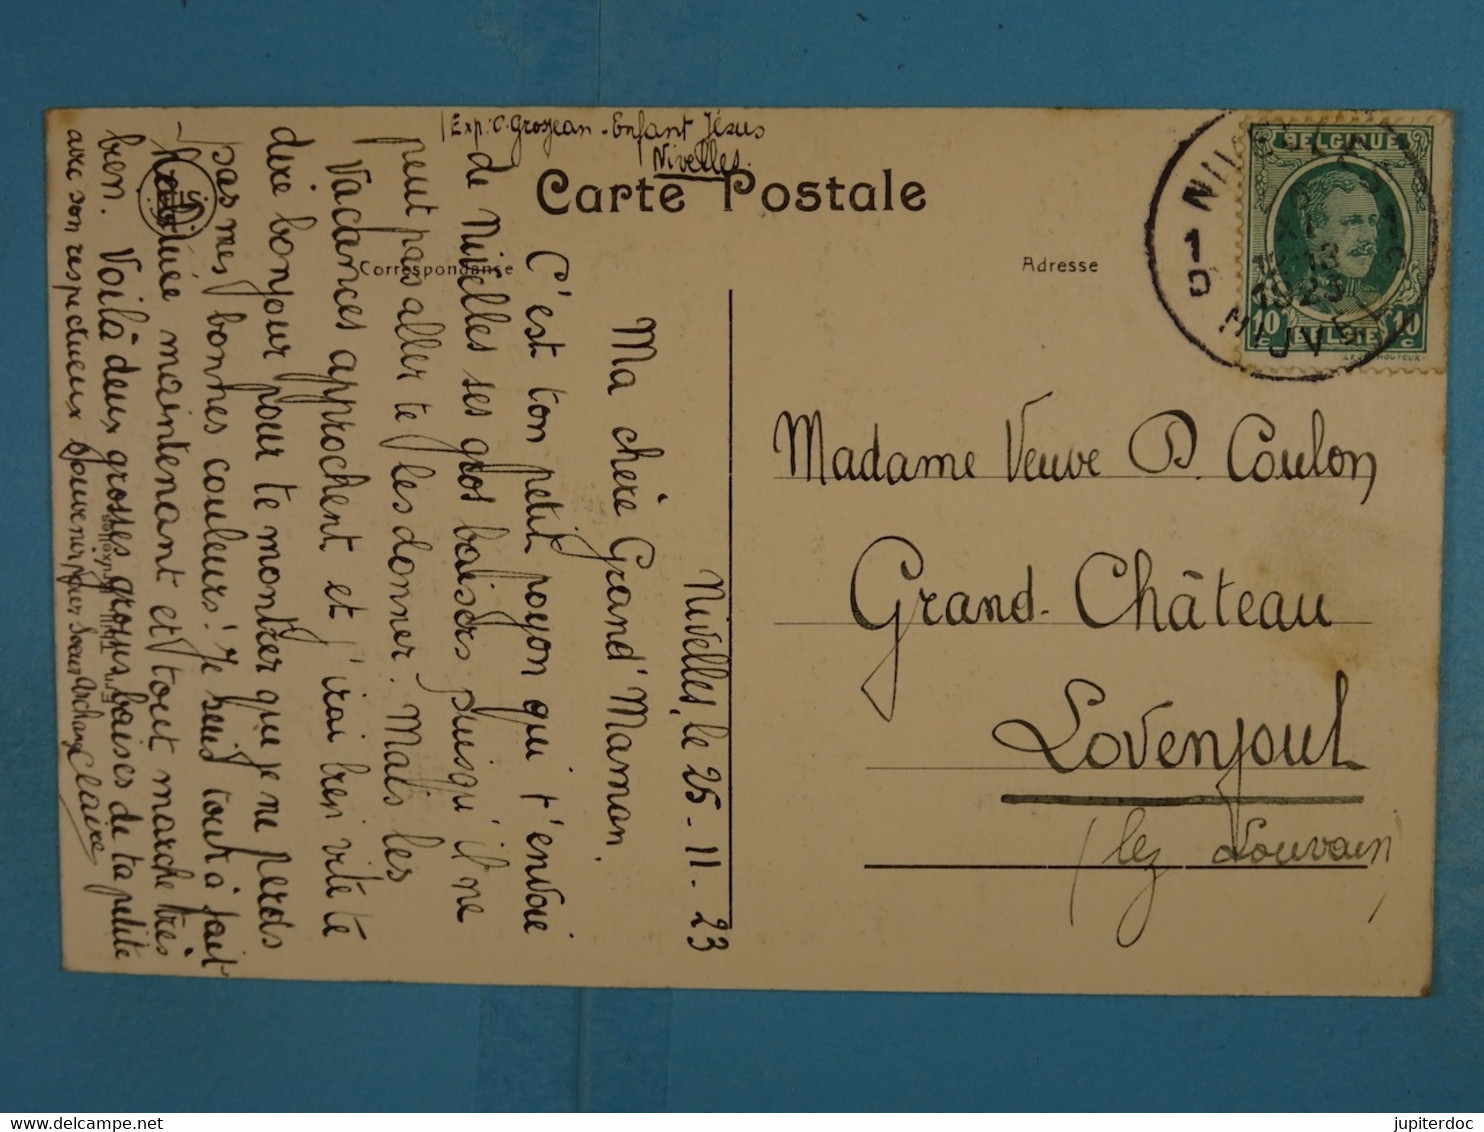 Exp: C. Grosjean - Enfant Jésus
Nivelles.
Carte Postale
Correspondance
Adresse
BELGIQUE
1923
10 c
10 c
BELGIE
1
D
Madame Veuve D. Coulon
Grand-Château
Lovenjoul
(lez Louvain)
Nivelles, le 25-11-23
Ma chère Grand'Maman.
C'est ton petit poyon qui t'envoie
de Nivelles ses gros baisers puisqu'il ne
peut pas aller te les donner. Mais les
Vacances approchent et j'irai bien vite te
dire bonjour pour te montrer que je ne perds
pas mes bonnes couleurs! Je suis tout à fait
maintenant et tout marche très
bien. Voilà deux grosses grosses baises de ta petite
Claire
avec son respectueux souvenir pour Soeur Archange